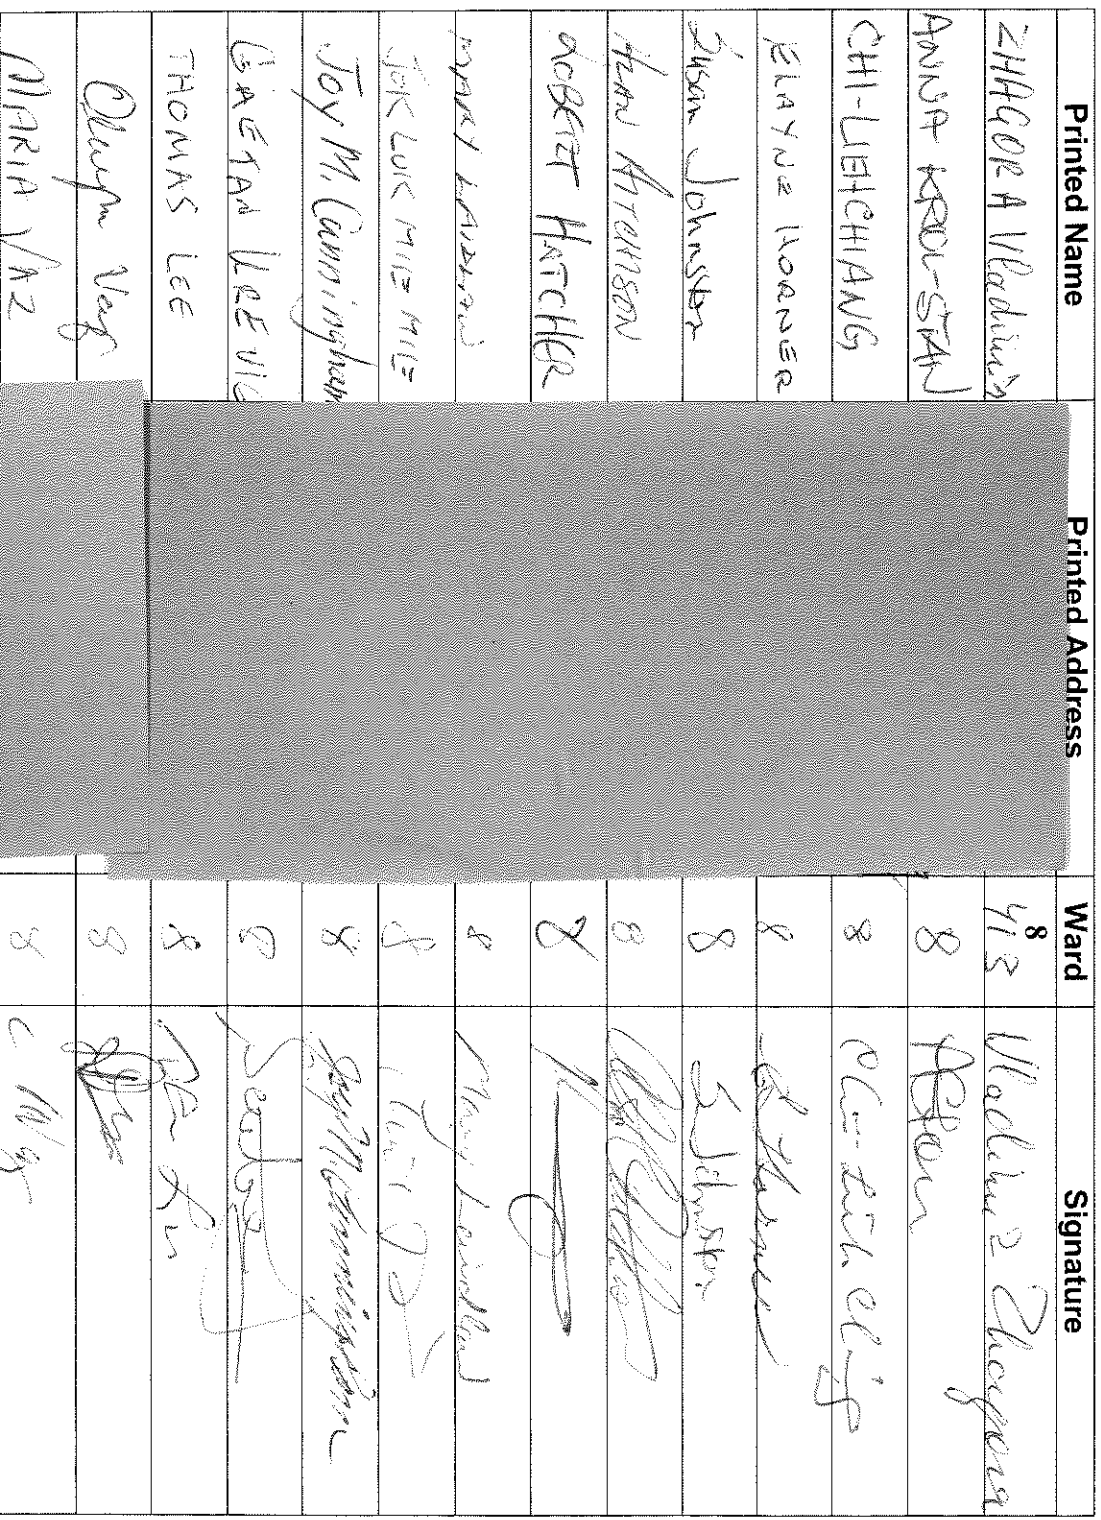 Printed Name Printed Address Ward Signature
ZHAGORA Vladimiz 8 43 Vladimiz Zhagora
ANNA KROL-STAN 8 AStan
CHI-LIEH CHIANG 8
ELAYNE HORNER 8 E Horner
Susan Johnston 8 S Johnston
ALAN AITCHISON 8
ROBERT HATCHER 8
MARY LAIDLAW 8 Mary Laidlaw
JOK LUK MIE MIE 8
Joy M. Cunningham 8 Joy M Cunningham
GAETAN VREVIC 8
THOMAS LEE 8
8
MARIA VAZ 8